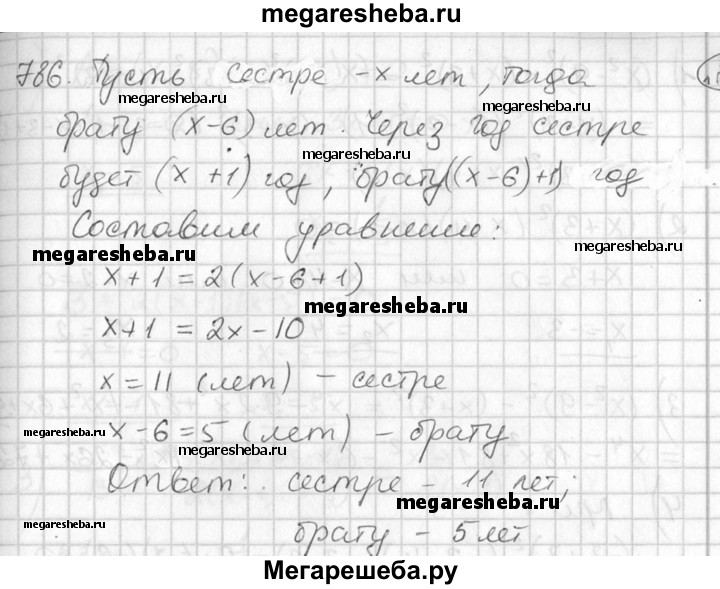 megaresheba.ru
786. Пусть сестре - x лет, тогда
megaresheba.ru megaresheba.ru
брату (x-6) лет. Через год сестре
megaresheba.ru
будет (x+1) год, брату ((x-6)+1) год
Составим уравнение:
megaresheba.ru megaresheba.ru
x+1=2(x-6+1)
megaresheba.ru
x+1=2x-10
x=11 (лет) - сестре
megaresheba.ru x-6=5 (лет) - брату
megaresheba.ru
Ответ: сестре - 11 лет;
megaresheba.ru
megaresheba.ru брату - 5 лет
megaresheba.ru
Мегарешеба.ру